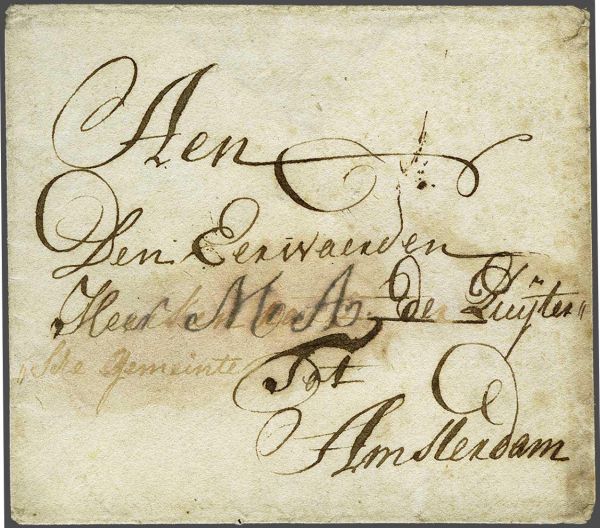 Aen
Den Eerwaerden
Heer M A De Ruijter
Gemeinte
Tot
Amsterdam